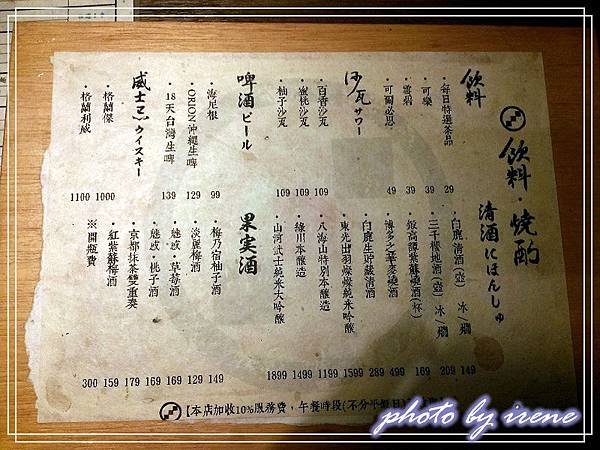 飲料・燒酌
飲料
・每日特選茶品 29
・可樂 39
・雪碧 39
・可爾必思 49
沙瓦サワー
・百香沙瓦 109
・蜜桃沙瓦 109
・柚子沙瓦 109
啤酒ビール
・海尼根 99
・ORION沖繩生啤 129
・18天台灣生啤 139
威士忌ウイスキー
・格蘭傑 1000
・格蘭利威 1100
清酒にほんしゅ
・白鹿清酒(壺) 冰/燗 149
・三千櫻地酒(壺) 冰/燗 209
・銀高譚紫蘇燒酒(杯) 169
・博多之華麥燒酒 499
・白鹿生貯藏清酒 289
・東光出羽燦燦純米吟釀 1599
・八海山特別本釀造 1199
・綠川本釀造 1499
・山河武士純米大吟釀 1899
果実酒
・梅乃宿柚子酒 149
・淡麗梅酒 129
・魅惑・草莓酒 169
・魅惑・桃子酒 169
・京都抹茶雙重奏 179
・紅紫蘇梅酒 159
※開瓶費 300
【本店加收10%服務費，午餐時段(不分平假日)
photo by irene